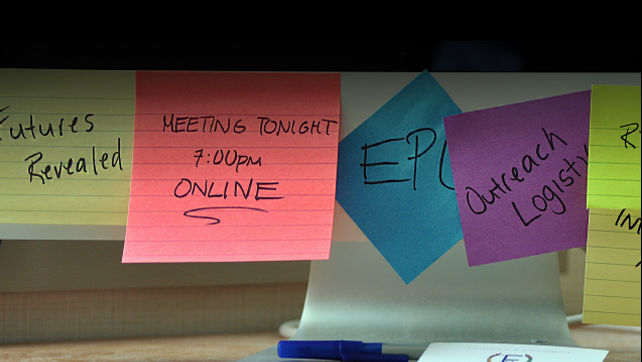 Futures
Revealed
MEETING TONIGHT
7:00pm
ONLINE
EPC
Outreach
Logisti
R
IN